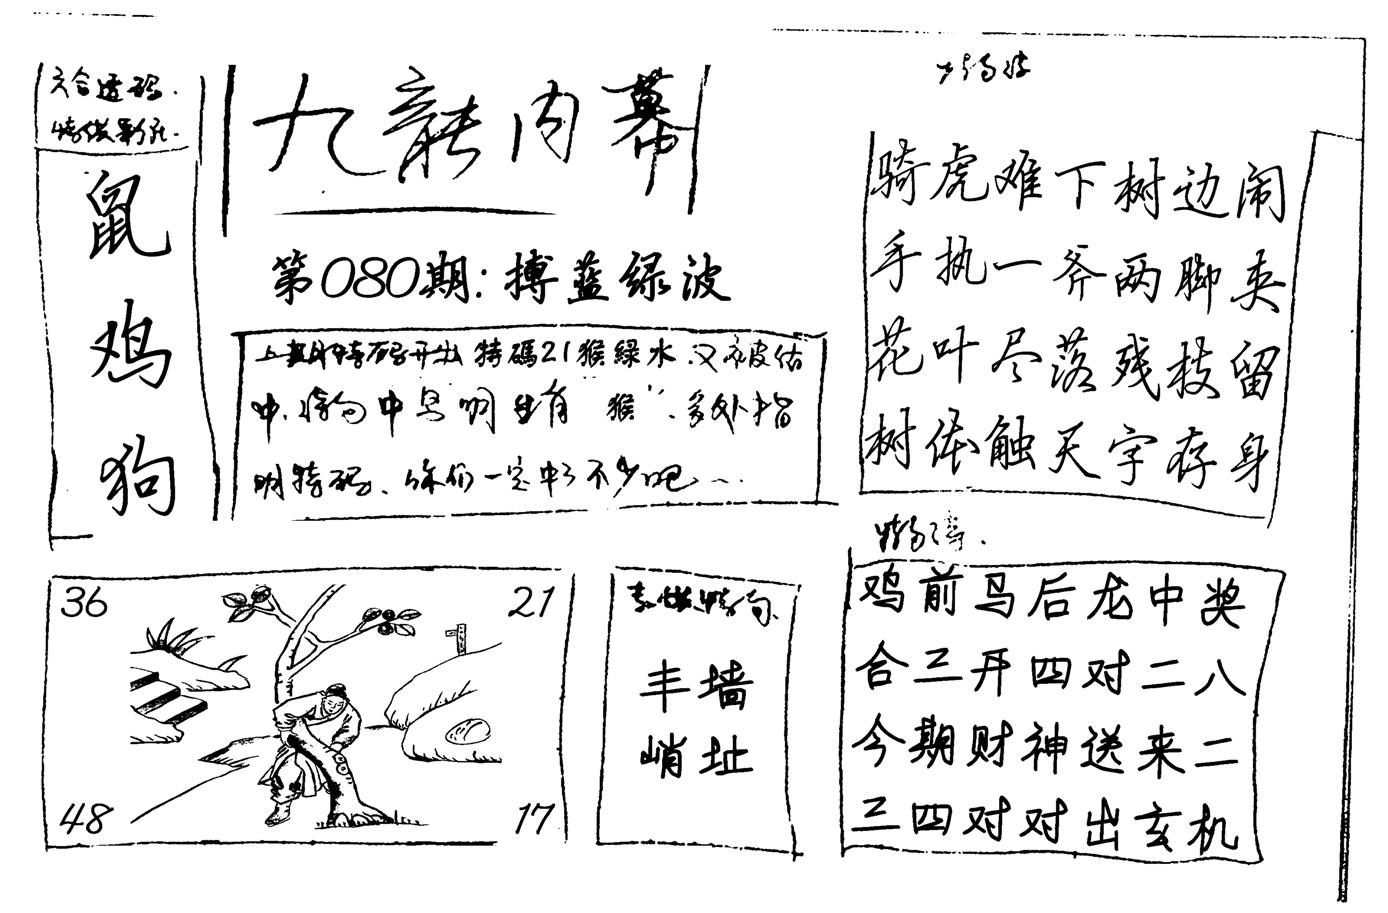 六合透码.
鼠
鸡
狗
九龍内幕
第080期:搏蓝绿波
上期特码开出特碼21猴綠水.又被估
中.特句中鸟明生肖"猴".多处指
明特码.你们一定中了不少吧…
骑虎难下树边闹
手执一斧两脚夹
花叶尽落残枝留
树体触天字存身
鸡前马后龙中奖
合三开四对二八
今期财神送来二
三四对对出玄机
36
21
48
17
丰墙
峭址